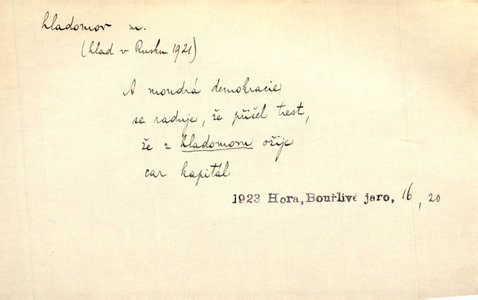 hladomor m.
(hlad v Rusku 1921)
A moudrá demokracie
se raduje, že přišel trest,
že z hladomoru ožije
car kapitál
1923 Hora, Bouřlivé jaro, 16, 20